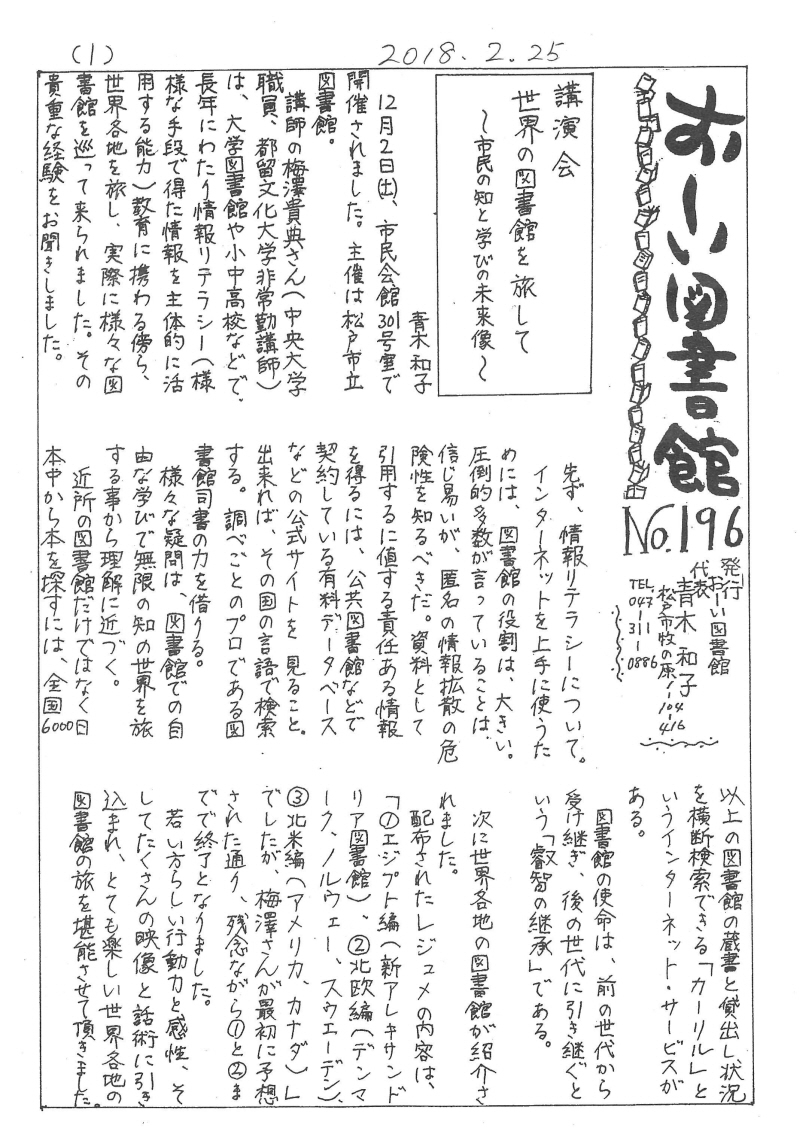 (1)
2018.2.25
おーい図書館
No.196
発行
おーい図書館
代表
青木 和子
松戸市牧の原1-104-416
TEL 047-311-0886
講演会
世界の図書館を旅して
〜市民の知と学びの未来像〜
青木和子
12月2日(土)、市民会館301号室で
開催されました。主催は松戸市立
図書館。
講師の梅澤貴典さん(中央大学
職員、都留文化大学非常勤講師)
は、大学図書館や小中高校などで、
長年にわたり情報リテラシー(様
様な手段で得た情報を主体的に活
用する能力)教育に携わる傍ら、
世界各地を旅し、実際に様々な図
書館を巡って来られました。その
貴重な経験をお聞きしました。
先ず、情報リテラシーについて。
インターネットを上手に使うた
めには、図書館の役割は、大きい。
圧倒的多数が言っていることは、
信じ易いが、匿名の情報拡散の危
険性を知るべきだ。資料として
引用するに値する責任ある情報
を得るには、公共図書館などで
契約している有料データベース
などの公式サイトを見ること。
出来れば、その国の言語で検索
する。調べごとのプロである図
書館司書の力を借りる。
様々な疑問は、図書館での自
由な学びで無限の知の世界を旅
する事から理解に近づく。
近所の図書館だけではなく日
本中から本を探すには、全国6000
以上の図書館の蔵書と貸出し状況
を横断検索できる「カーリル」と
いうインターネット・サービスが
ある。
図書館の使命は、前の世代から
受け継ぎ、後の世代に引き継ぐと
いう「叡智の継承」である。
次に世界各地の図書館が紹介さ
れました。
配布されたレジュメの内容は、
「①エジプト編(新アレキサンド
リア図書館)、②北欧編(デンマ
ーク、ノルウェー、スウェーデン)、
③北米編(アメリカ、カナダ)」
でしたが、梅澤さんが最初に予想
された通り、残念ながら①と②ま
でで終了となりました。
若い方らしい行動力と感性、そ
してたくさんの映像と話術に引き
込まれ、とても楽しい世界各地の
図書館の旅を堪能させて頂きました。